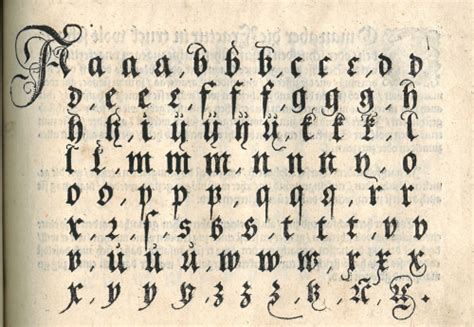 A a a a, b b b, c c c, d d
d, e e e, f f f, g g g, h
h, k k k, l
l l, m m m, n n n, o
o, o, p p p, q q q r r
r, ſ s s s, t t t t v v
v, ů ů ů, w w w, x x
x, y y y, z z z, N,